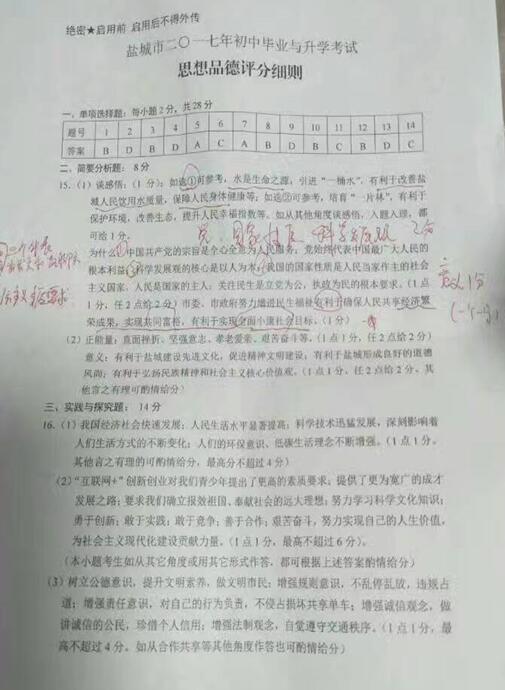 绝密★启用前 启用后不得外传
盐城市二〇一七年初中毕业与升学考试
思想品德评分细则
一、单项选择题：每小题2分，共28分
题号 1 2 3 4 5 6 7 8 9 10 11 12 13 14
答案 B D D A C A B D B C B D C
二、简要分析题： 8分
15.（1）谈感悟：（1分）：如选①可参考，水是生命之源，引进“一桶水”，有利于改善盐
城人民饮用水质量，保障人民身体健康等；如选②可参考，培育“一片林”，有利于
保护环境，改善生态，提升人民幸福指数等。如从其他角度谈感悟，入题入理，都
可给1分。
党、国家性质 科学发展观 2分
为什么：中国共产党的宗旨是全心全意为人民服务，党始终代表中国最广大人民的
根本利益；科学发展观的核心是以人为本；我国的国家性质是人民当家作主的社会
主义国家，人民是国家的主人；关注民生是立党为公、执政为民的根本要求。（1点
1分，任2点给2分）市委、市政府努力增进民生福祉有利于确保人民共享经济繁
荣成果，实现共同富裕，有利于实现全面小康社会目标。（1分）
意义1分
（2）正能量：直面挫折、坚强意志、孝老爱亲、艰苦奋斗等。（1点1分，任2点给2分）
意义：有利于盐城建设先进文化，促进精神文明建设；有利于盐城形成良好的道德
风尚；有利于弘扬民族精神和社会主义核心价值观。（1点1分、任2点给2分、其
他言之有理可酌情给分）
三、实践与探究题： 14分
16.（1）我国经济社会快速发展；人民生活水平显著提高；科学技术迅猛发展，深刻影响着
人们生活方式的不断变化；人们的环保意识、低碳生活理念不断增强。（1点1分。
其他言之有理的可酌情给分，最高分不超过4分）
（2）“互联网+”创新创业对我们青少年提出了更高的素质要求；提供了更为宽广的成才
发展之路；要求我们确立报效祖国、奉献社会的远大理想；努力学习科学文化知识；
勇于创新；敢于实践；敢于竞争；善于合作；艰苦奋斗，努力实现自己的人生价值，
为社会主义现代化建设贡献力量。（1点1分，最高不超过6分）。
（本小题考生如从其它角度或用其它形式作答，都可根据上述答案酌情给分）
（3）树立公德意识，提升文明素养，做文明市民；增强规则意识，不乱停乱放，违规占
道；增强责任意识，对自己的行为负责，不侵占损坏共享单车；增强诚信观念，做
讲诚信的公民，珍惜个人信用；增强法制观念，自觉遵守交通秩序。（1点1分，最
高不超过4分。如从合作共享等其他角度作答也可酌情给分）